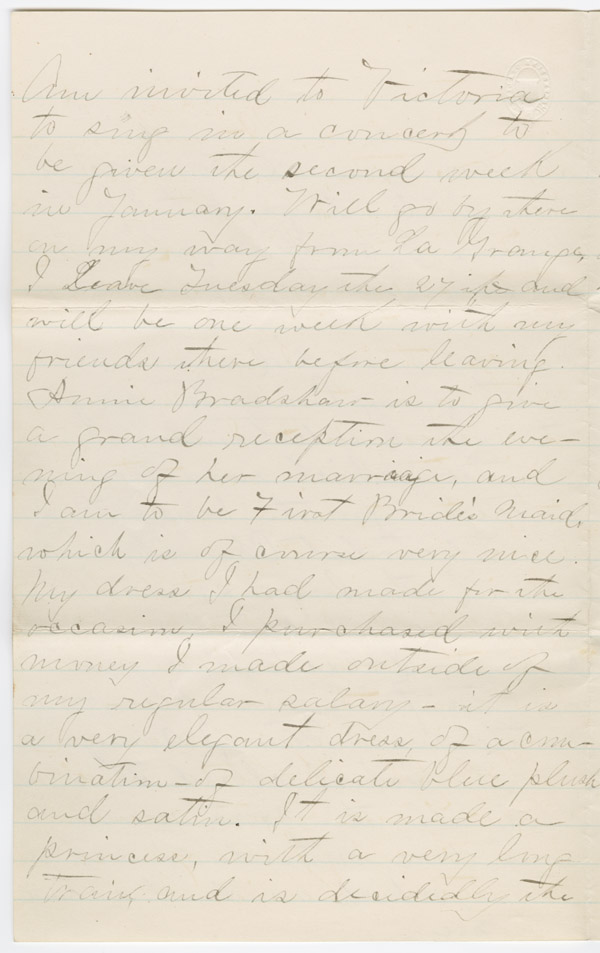 Am invited to Victoria
to sing in a concert to
be given the second week
in January. Will go by there
on my way from La Grange,
I Leave Tuesday the 27th and
will be one week with my
friends there before leaving.
Annie Bradshaw is to give
a grand reception the eve-
ning of her marriage, and
I am to be First Bride's Maid,
which is of course very nice.
My dress I had made for the
occasion, I purchased with
money I made outside of
my regular salary - it is
a very elegant dress, of a com-
bination - of delicate blue plush
and satin. It is made a
princess, with a very long
train, and is decidedly the